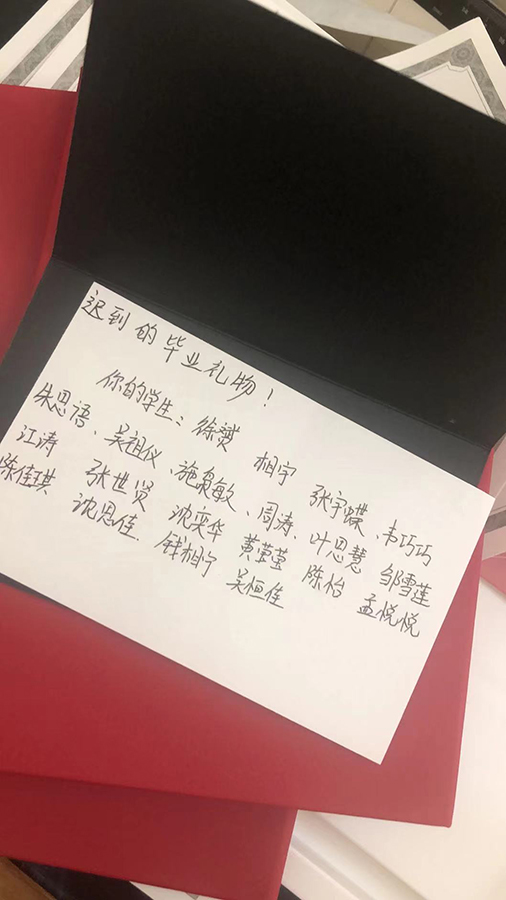 迟到的毕业礼物！
你的学生：徐赟 相宇 张宇蝶、韦巧巧
朱思语、吴祖仪、施泉敏、周涛、叶思慧 邹雪莲
江涛 张世贤 沈奕华 黄莹莹 陈怡 孟悦悦
陈佳琪 沈思佳 钱相宁 吴恒佳